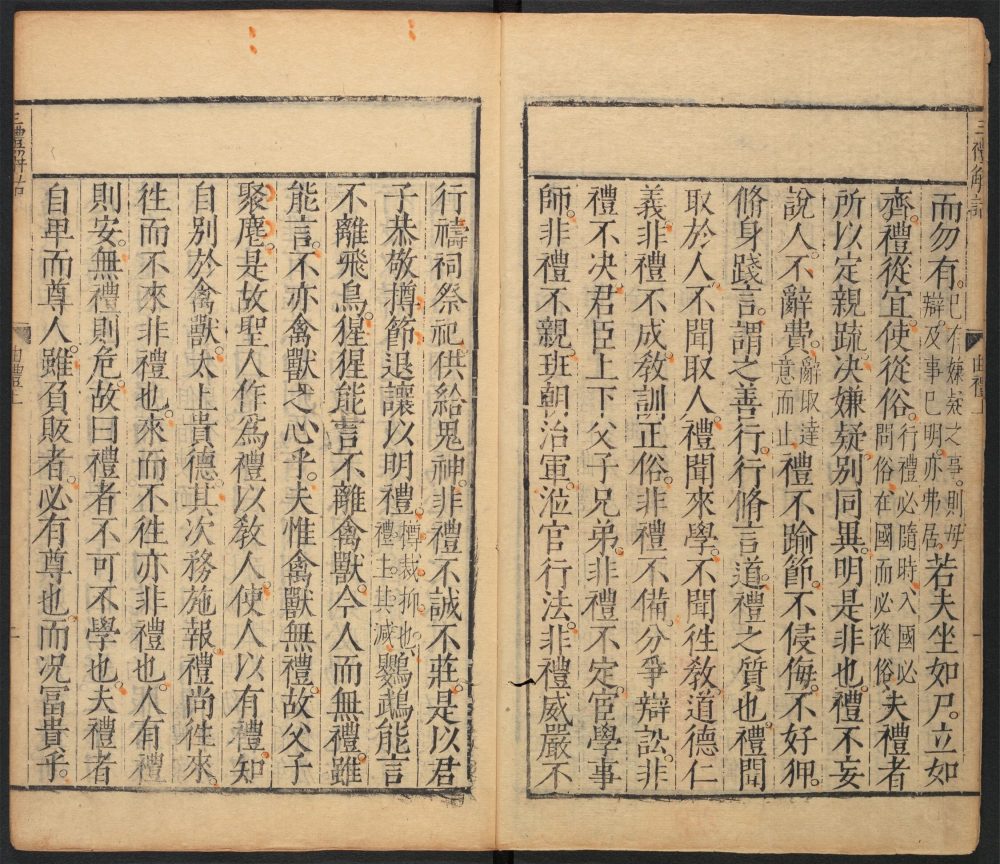 三禮解詁
曲禮上
而勿有。已有嫌疑之事。則毋辯及事已明。亦弗居。若夫坐如尸。立如
齊。禮從宜。使從俗。行禮必隨時入國必問俗在國而必從俗。夫禮者
所以定親疏。决嫌疑。別同異。明是非也。禮不妄
說人。不辭費。辭取達意而止。禮不踰節。不侵侮。不好狎。
脩身踐言。謂之善行。行脩言道。禮之質也。禮聞
取於人。不聞取人。禮聞來學。不聞徃教。道德仁
義。非禮不成。教訓正俗。非禮不備。分爭辯訟。非
禮不决。君臣上下父子兄弟。非禮不定。宦學事
師。非禮不親。班朝治軍。涖官行法。非禮威嚴不
行。禱祠祭祀。供給鬼神。非禮不誠不莊。是以君
子恭敬撙節退讓以明禮。撙裁抑也。禮主其減。鸚鵡能言
不離飛鳥。猩猩能言不離禽獸。今人而無禮。雖
能言。不亦禽獸之心乎。夫惟禽獸無禮。故父子
聚麀。是故聖人作。為禮以教人。使人以有禮。知
自別於禽獸。太上貴德。其次務施報。禮尚徃來。
徃而不來非禮也。來而不徃亦非禮也。人有禮
則安。無禮則危。故曰禮者不可不學也。夫禮者
自卑而尊人。雖負販者。必有尊也。而况冨貴乎。
三禮解詁
曲禮上